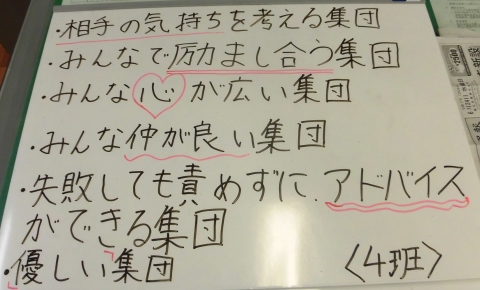 ・相手の気持ちを考える集団
・みんなで励まし合う集団
・みんな心が広い集団
・みんな仲が良い集団
・失敗しても責めずに、アドバイス
ができる集団
・「優しい」集団
〈4班〉